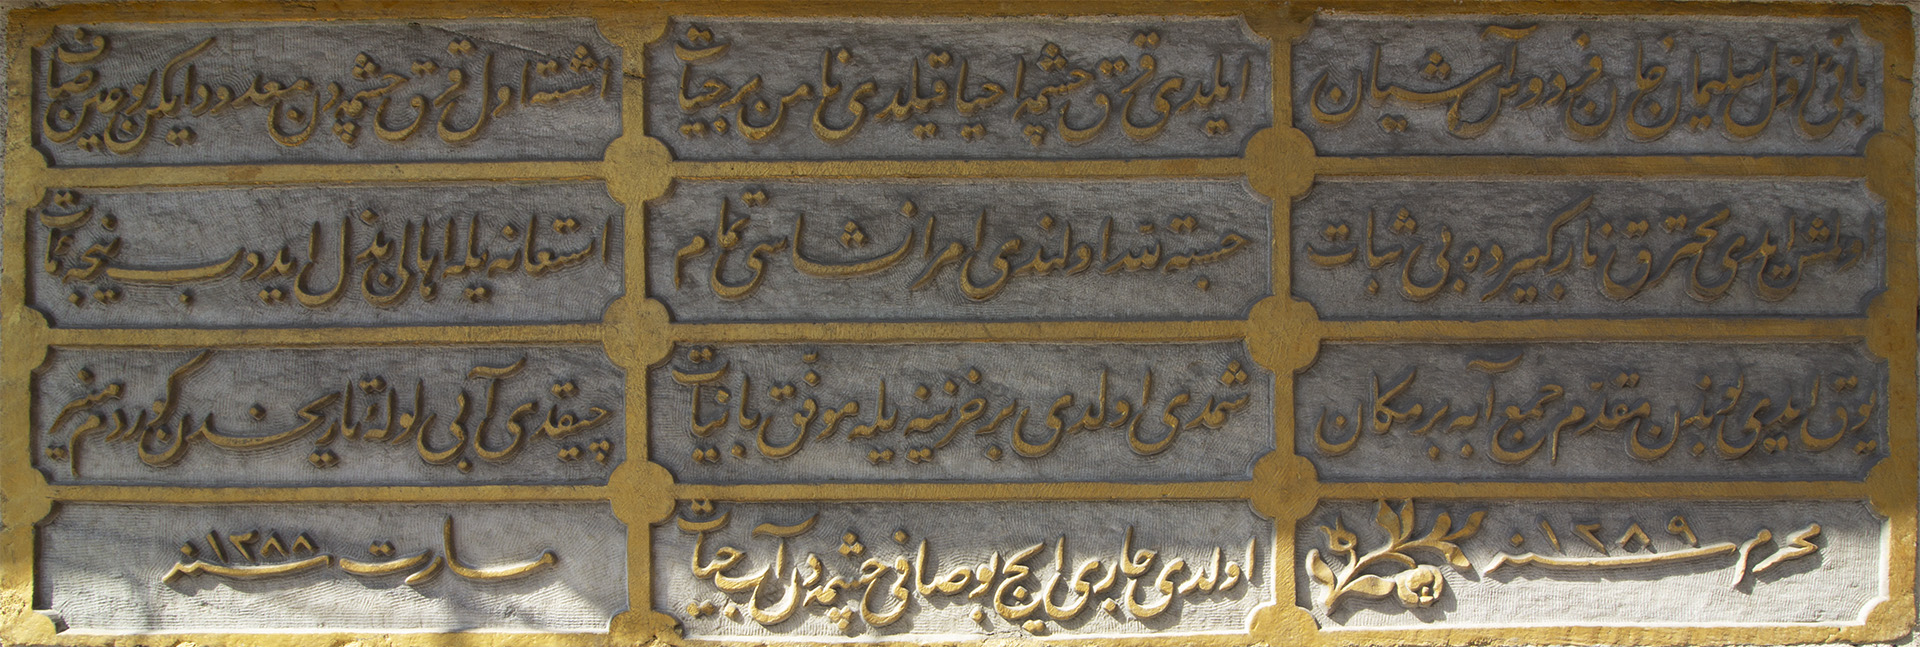 بانئ اول سلیمان خان فردوس آشیان
ایلدی قرق چشمه احیا قیلدی نامن بر حیات
اشته اول قرق چشمه دن معدود ایکن بو عین صاف
اولمش ایدی محترق نار کبیرده بی ثبات
حسبة لله اولندی امر انشاسی تمام
استعانه یله اهالی بذل ایدوب نیجه
یوق ایدی بوندن مقدم جمع آبه بر مکان
شمدی اولدی بر خزینه یله موفق بانیات
چیقدی آبی لوله تاریخدن کوردم منیر
محرم سنه ١٢٨٩
اولدی جاری ایچ بو صافی چشمه دن آب حیات
مارت سنه ١٢٨٨